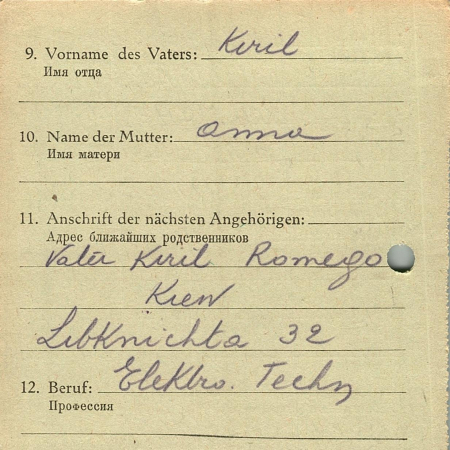 9. Vorname des Vaters: Kiril
Имя отца
10. Name der Mutter: Anna
Имя матери
11. Anschrift der nächsten Angehörigen:
Адрес ближайших родственников
Vater Kiril Romego
Kiew
Libknichta 32
12. Beruf: Elektro. Techn
Профессия